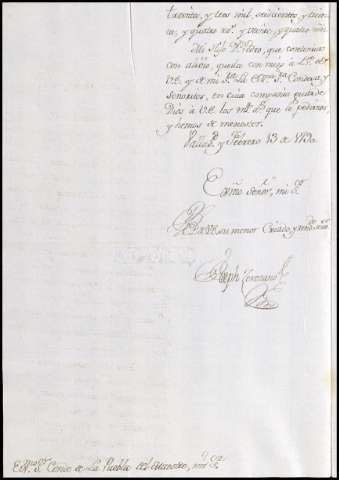 treinta, y tres mil, seiscientos, y trein
ta, y quatro rs. y trece, y quatro mrs.
Mi Hijo Dn. Pedro, que continúa
con alivio, queda con migo à L. P. de
V.E. y de mi Sra. la Exma. Sra. Condesa, y
Señoritos, en cuia compañia guarde
Dios à V.E. los ms. as. que le pedimos,
y hemos de menester.
Vallad. y Febrero 13 de
Exmo. Señor, mi Sr.
B L M de V.E. su menor Criado, y
Joseph
Exmo. Sr. Conde de La Puebla del Maestre, mi Sr.